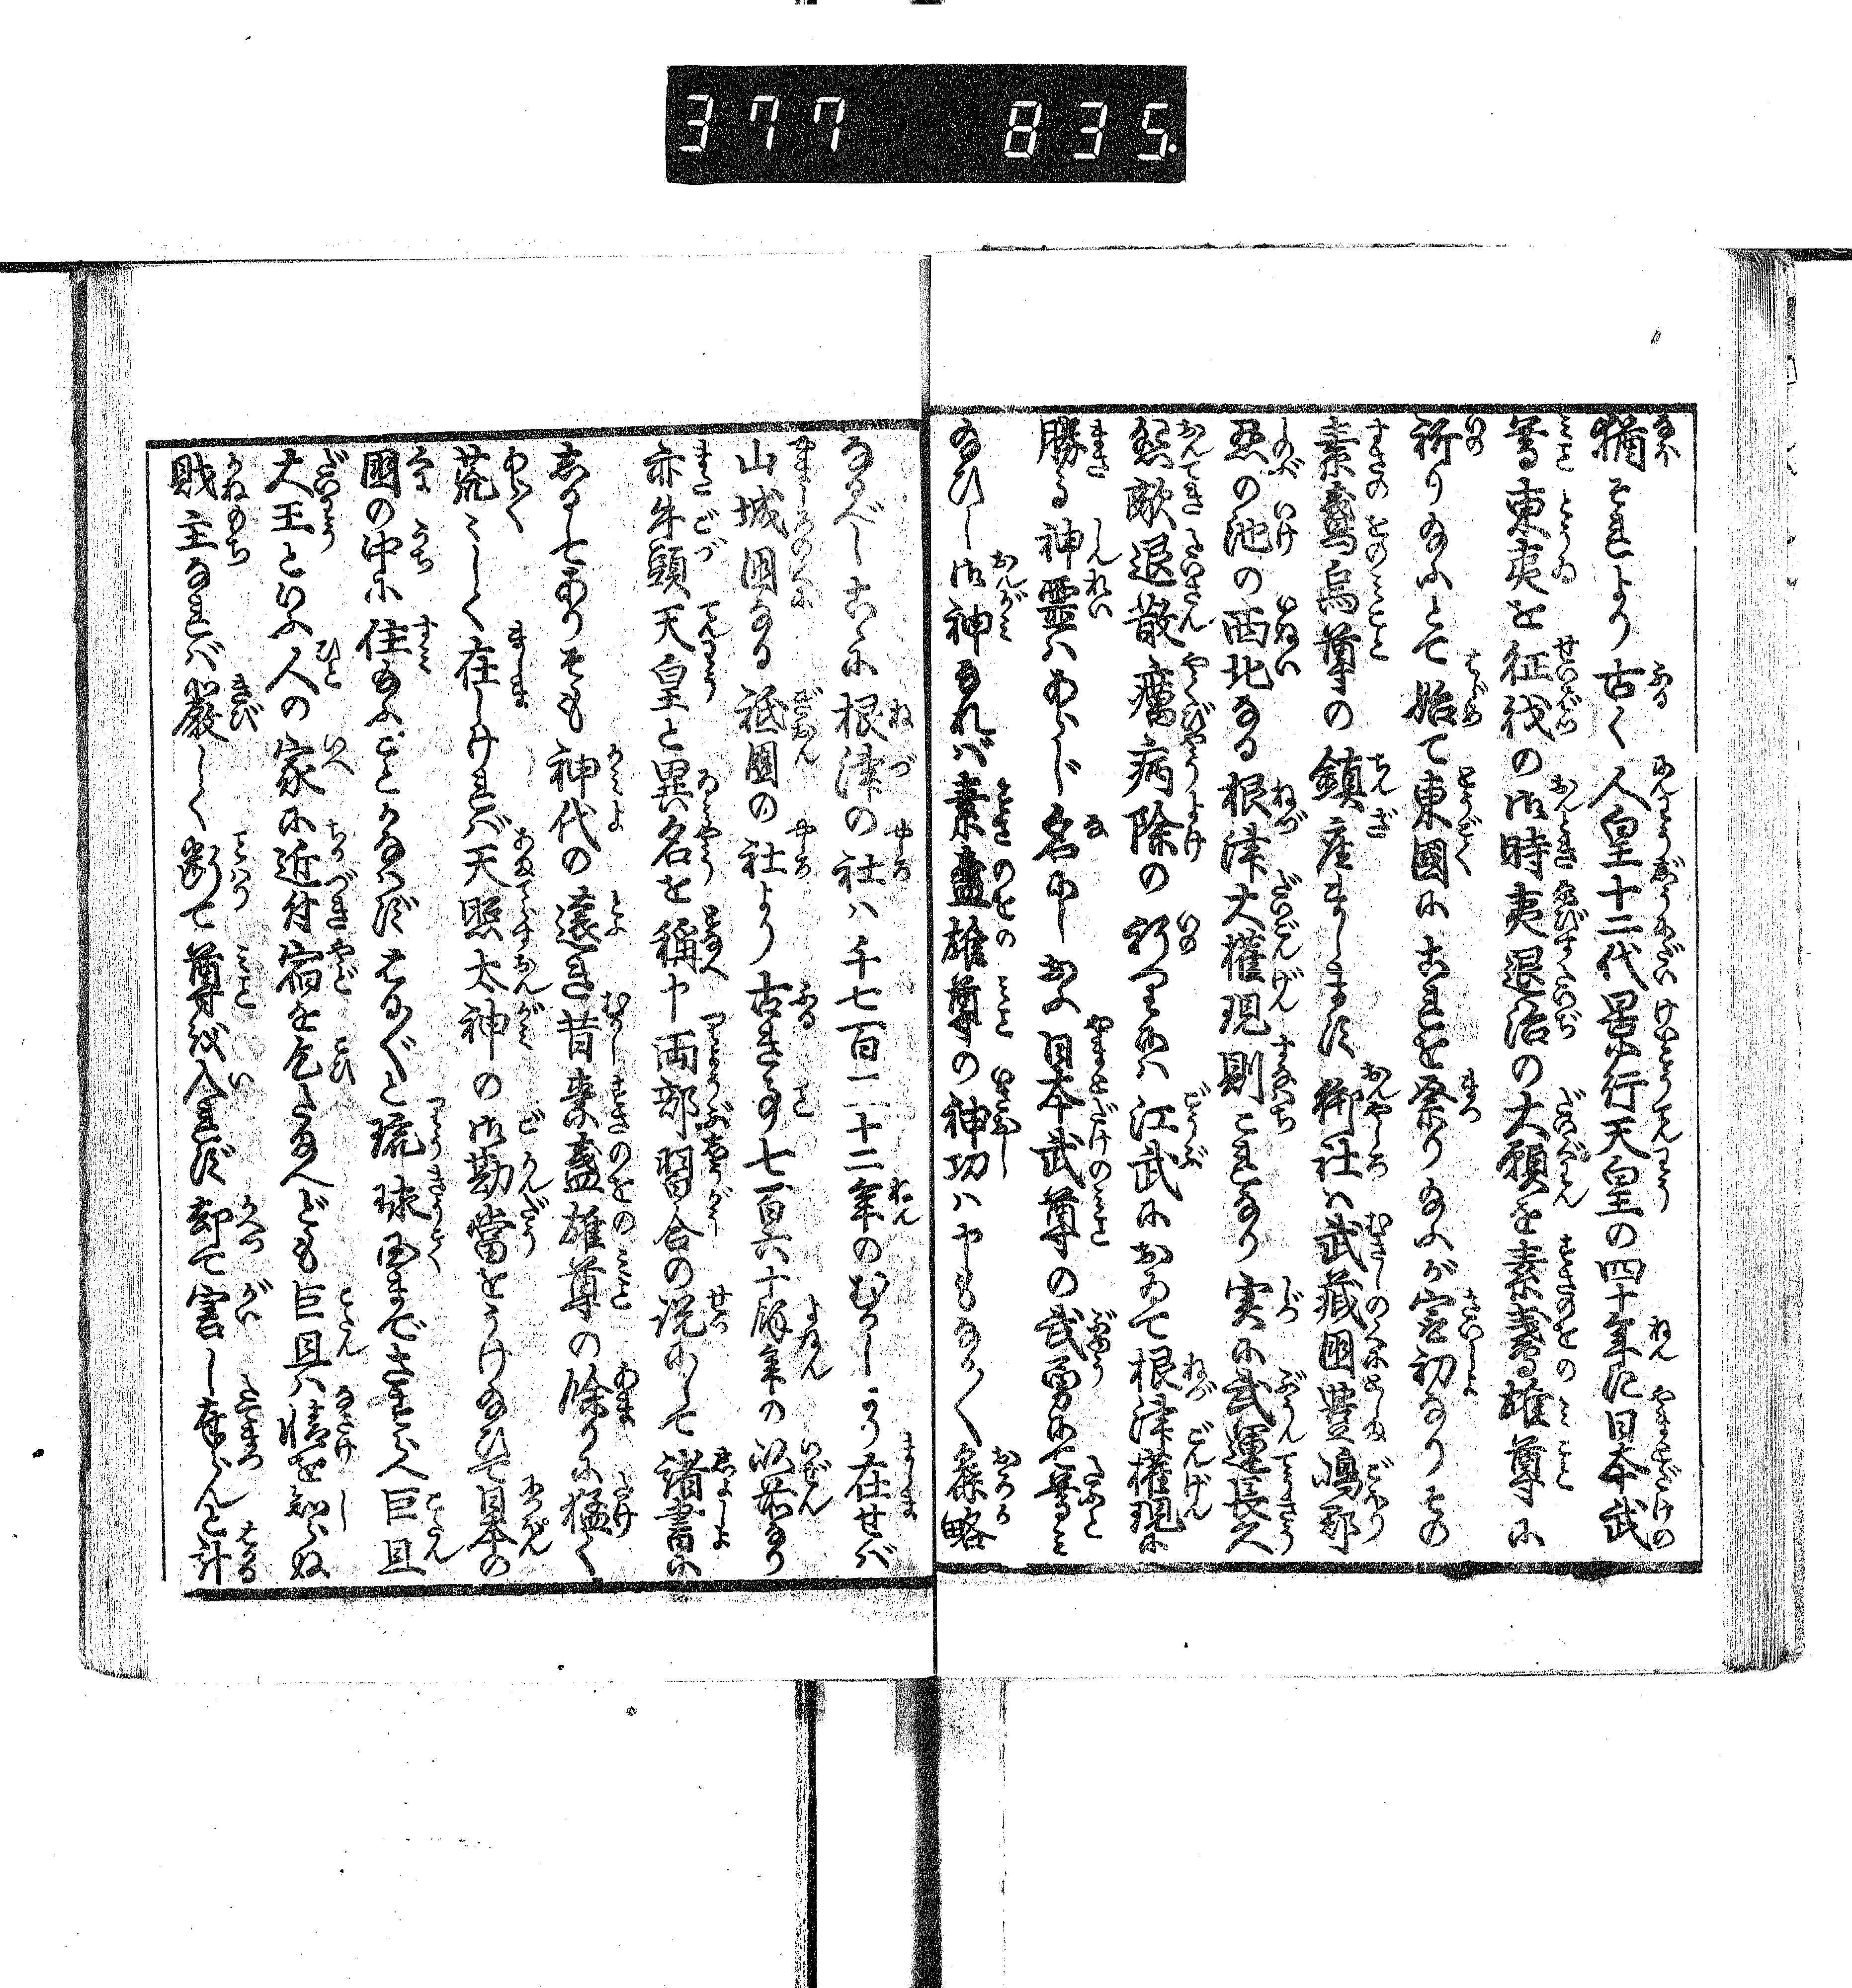 377 835
猶それより古く人皇十二代景行天皇の四十年に日本武
尊東夷を征伐の御時夷退治の大願を素盞雄尊に
祈り給ふとて始て東國に古れを祭り給ふが宮初なりその
素盞烏尊の鎮座まします御社は武蔵国豊嶋郡
忍の池の西北なる根津大権現則これなり実に武運長久
怨敵退散癘病除の祈りには江武におゐて根津権現に
勝る神霊はあらじ名にしおふ日本武尊の武勇にて尊み
給ひし御神なれば素盞雄尊の神功はやもなかく麁略
なるべし古くに根津の社は千七百二十二年のむかしより在せば
山城国なる祗園の社より古き事七百六十餘年の以前なり
亦牛頭天皇と異名を稱へ申両部習合の説にして諸書に
志るしてありそも神代の遠き昔素盞雄尊の除りに猛く
荒々しく在しければ天照太神の御勘當をうけ給ひて日本の
国の中に住給ふことかなはずはるばると琉球国までさまよへ巨旦
大王といふ人の家に近付宿を乞たまへども巨旦は情を知らぬ
賎主なれば嚴しく断て尊を入れず却て害し奉らんと計